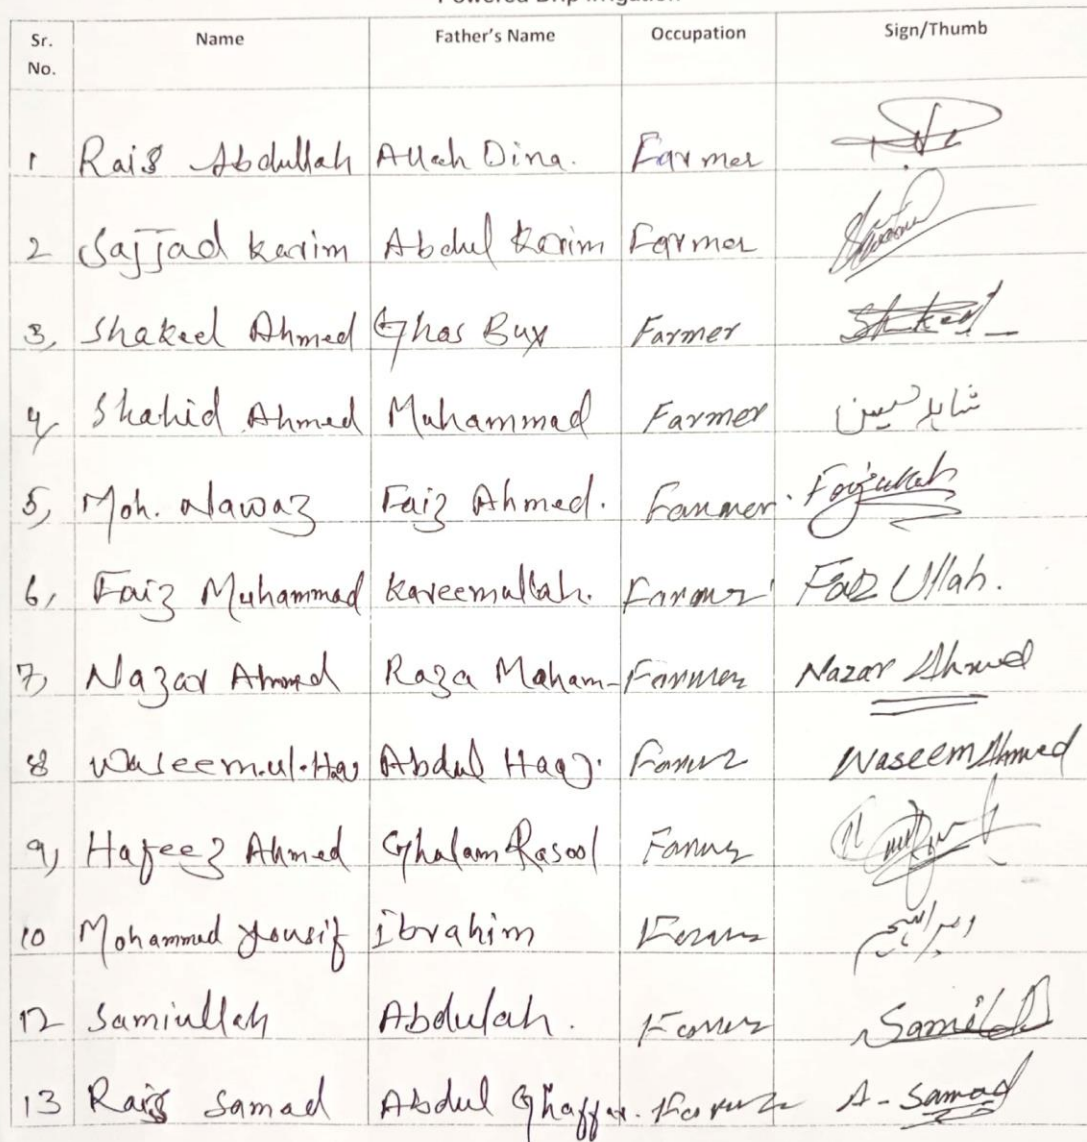 Powered Drip Irrigation
Sr. No. Name Father's Name Occupation Sign/Thumb
1 Rais Abdullah Allah Dina. Farmer
2 Sajjad Karim Abdul Karim Farmer
3, Shakeel Ahmed Ghas Bux Farmer Shakeel
4, Shahid Ahmed Muhammad Farmer شاہد حسین
5, Moh. Nawaz Faiz Ahmed. Farmer. Faizullah
6, Faiz Muhammad Kareemullah. Farmer Faiz Ullah.
7, Nazar Ahmed Raza Maham- Farmer Nazar Ahmed
8 Waseem.ul.Haq Abdul Haq. Farmer Waseem Ahmed
9, Hafeez Ahmed Ghulam Rasool Farmer
10 Mohammed Yousif Ibrahim Farmer
12 Samiullah Abdulah. Farmer
13 Rais Samad Abdul Ghaffar. Farmer A-Samad